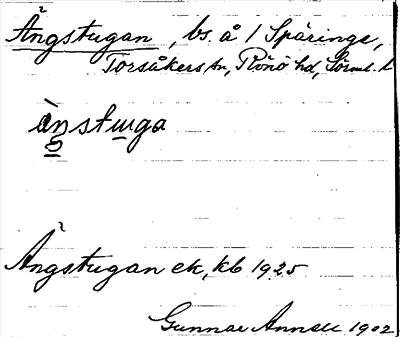 Ängstugan, bs. å 1 Spåringe,
Torsåkers sn, Rönö hd, Sörml. l.
ànstuga
Ängstugan ek, kb 1925
Gunnar 1902